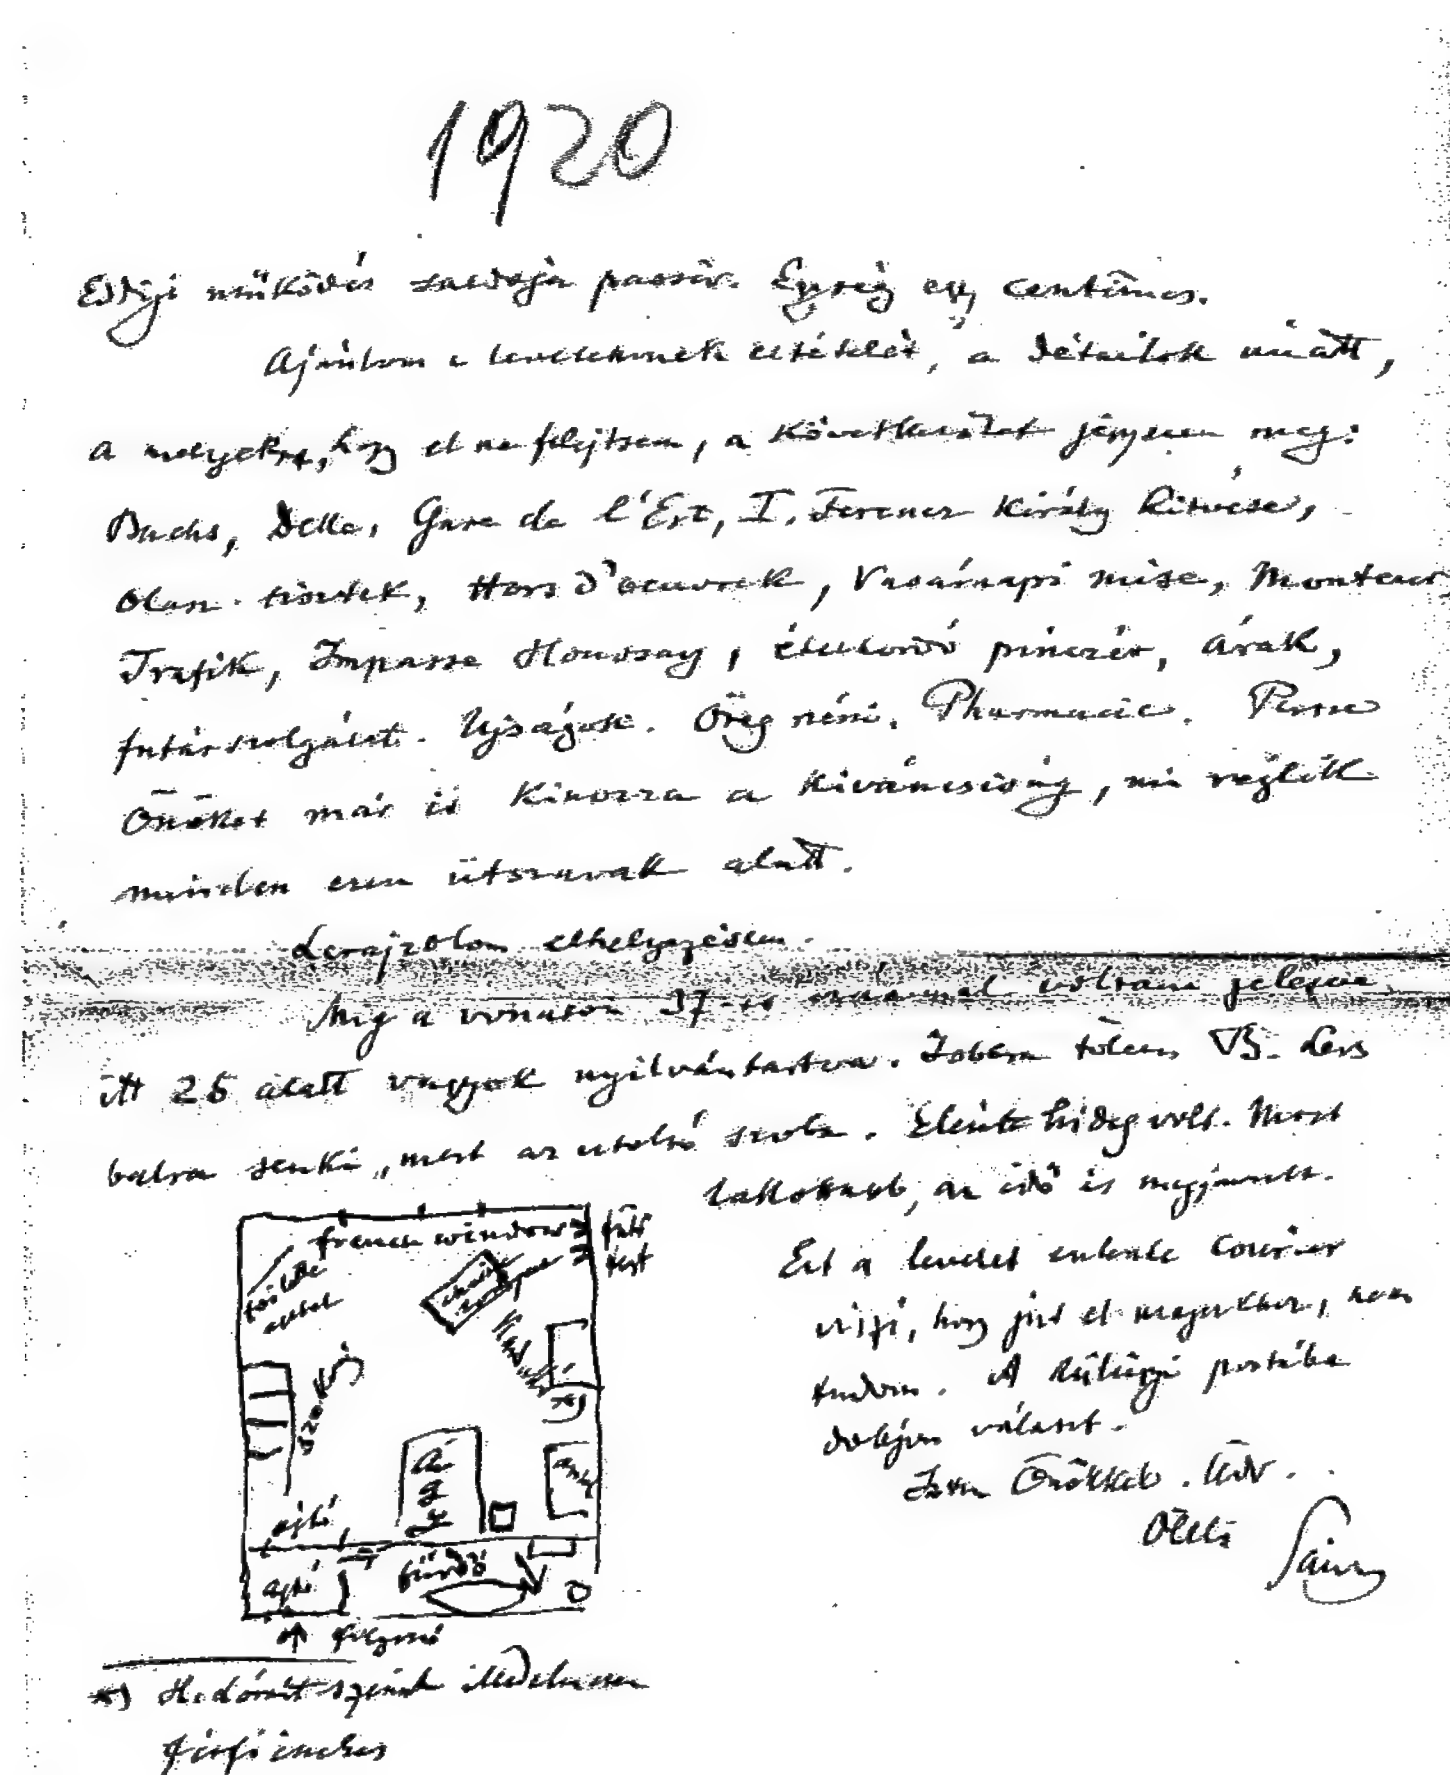 1920
Eddigi működés saldoja passiv. Egység egy centimes.
Ajánlom e leveleknek eltételét, a détailok miatt,
a melyekre, hogy el ne felejtsem, a következőket jegyzem meg:
Buchs, Delle, Gare de l'Est, I. Ferencz Király kitűzése,
Olasz tisztek, Hors d'oeuvrek, Vasárnapi mise, Monteur,
Trafik, Impasse Houssay, ételhordó pinczér, Árak,
futárszolgálat. Ujságok. Öreg néni. Pharmacie. Persze
Önöket már is kinozza a kiváncsiság, mi rejlik
minden ezen útszavak alatt.
Lerajzolom elhelyezésem.
Míg a vonaton 37-es számmal voltam jelezve
itt 25 alatt vagyok nyilvántartva. Jobbra tőlem VS. Lers
balra senki, mert az utolsó szoba. Eleinte hideg volt. Most
tatlomabb, az idő is megjavult.
french window
fűtő
test
toilette
asztal
chaise
longue
Kandalló
*)
Ágy
ajtó
ajtó
fürdő
folyosó
Ezt a levelet entente courier
viszi, hogy jut el magukhoz, nem
tudom. A külügyi postába
dobjon választ.
Isten Önökkel. Üdv.
Ölel
*) H. Lóránt szerint illedelmesen
férfi énekes